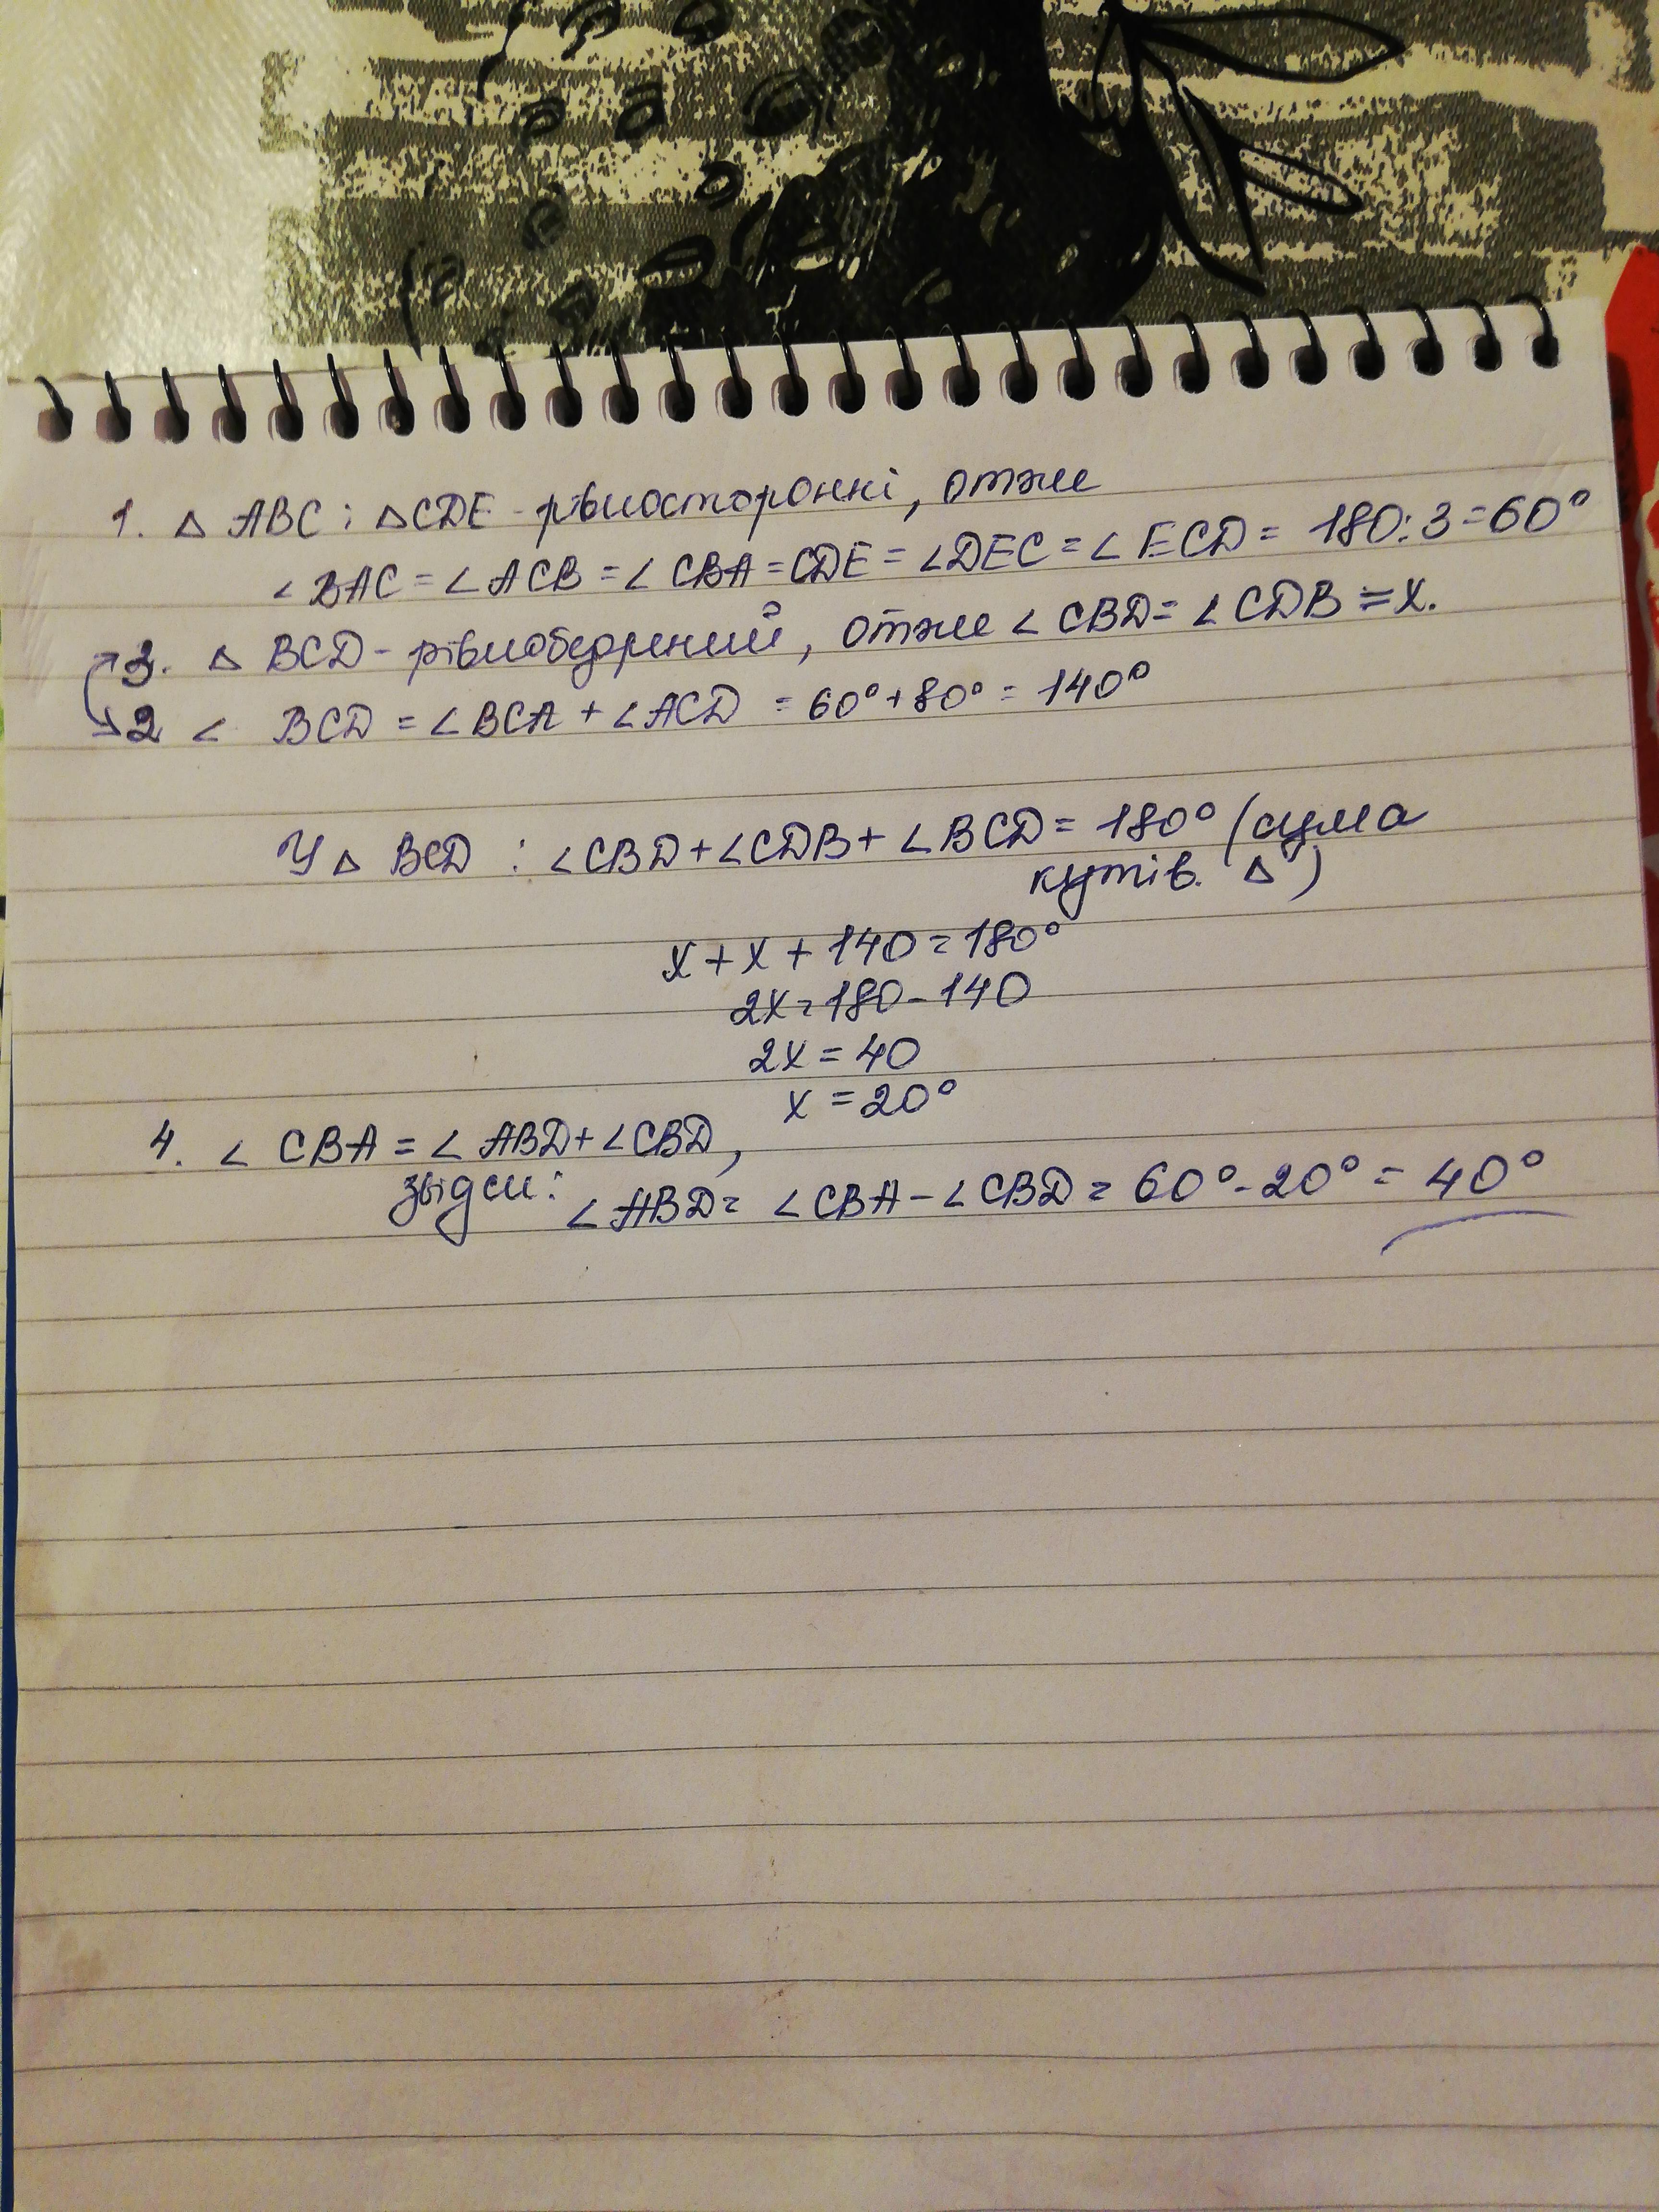 1. △ ABC і △CDE - рівносторонні, отже
∠BAC = ∠ACB = ∠CBA = CDE = ∠DEC = ∠ECD = 180:3=60°
3. △ BCD - рівнобедрений, отже ∠CBD = ∠CDB = x.
2 ∠ BCD = ∠BCA + ∠ACD = 60°+80° = 140°
У △ BCD : ∠CBD+∠CDB+∠BCD = 180° (сума
кутів. △)
x + x + 140 = 180°
2x = 180 - 140
2x = 40
x = 20°
4. ∠ CBA = ∠ ABD + ∠CBD,
звідси: ∠ABD = ∠CBA - ∠CBD = 60° - 20° = 40°